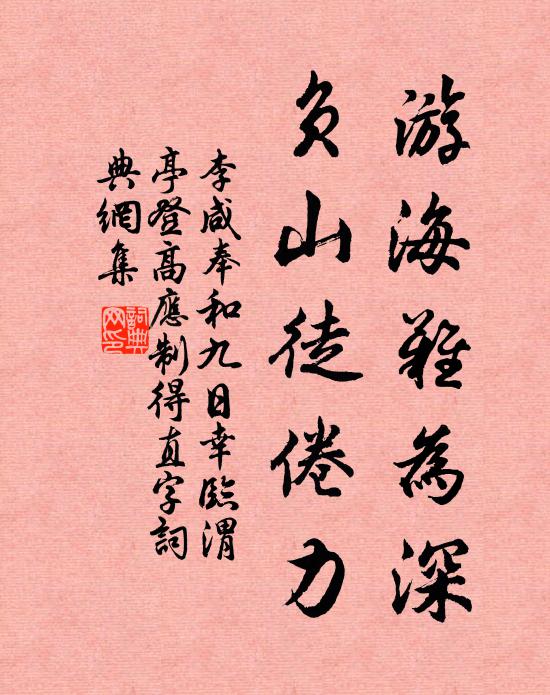 游海難為深
負山徒倦力
李咸奉和九日幸臨渭
亭登高應制得直字詞
典網集
詞典
网印